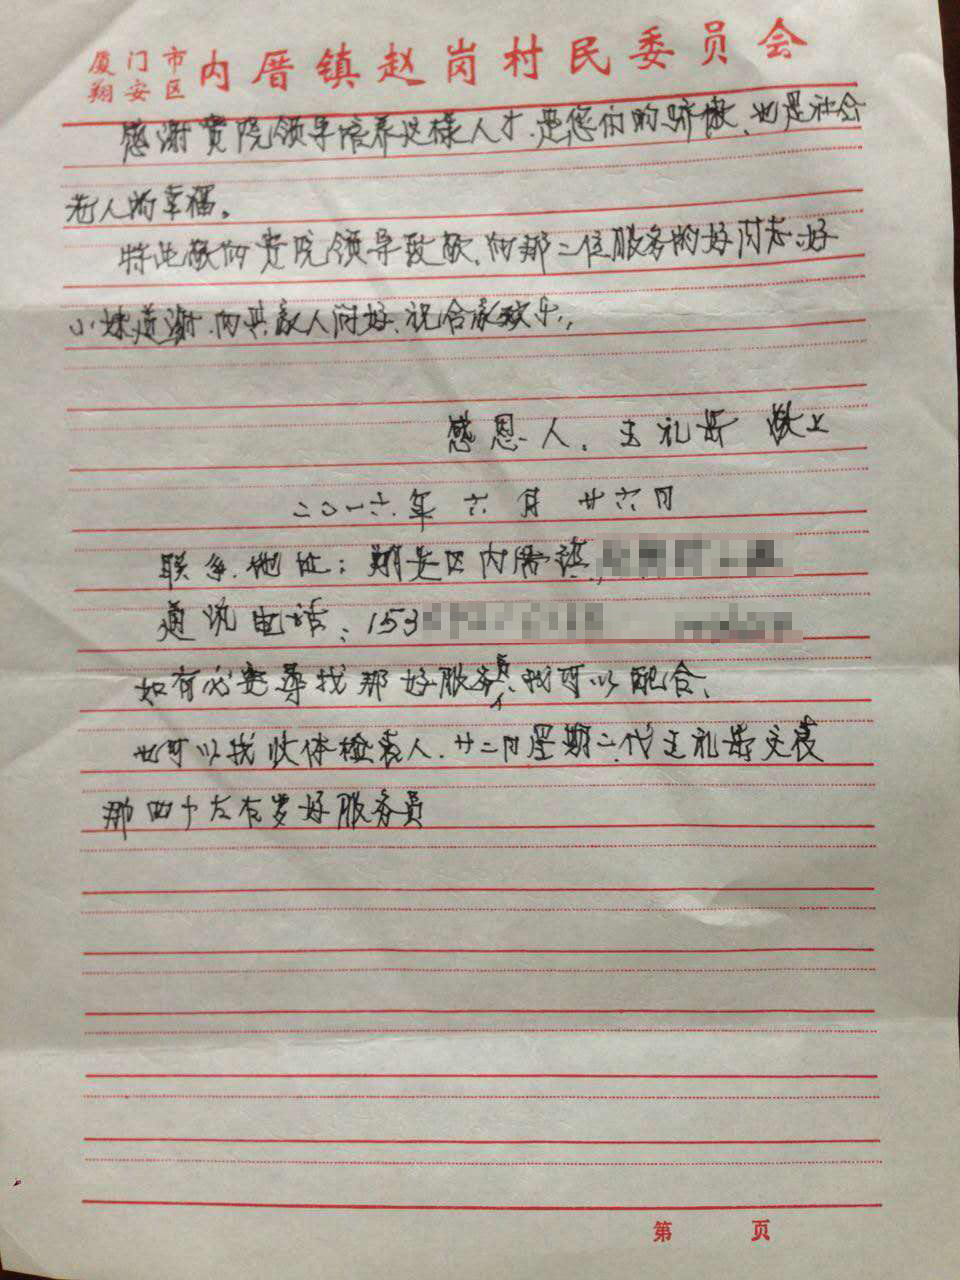 厦门市翔安区内厝镇赵岗村民委员会
感谢贵院领导培养这样人才.是您们的骄傲、也是社会
老人的幸福。
特此敬向贵院领导致敬、向那二位服务的好同志、好
小妹道谢.向其家人问好、祝合家欢乐,
感恩人、王礼岳 敬上
二〇一六年六月廿六日
联系地址:翔安区内厝镇
通讯电话:153
如有必要寻找那好服务员人、我可以配合、
也可以找收体检表人.廿二日星期二代王礼岳交表
那四十左右岁好服务员
第 页